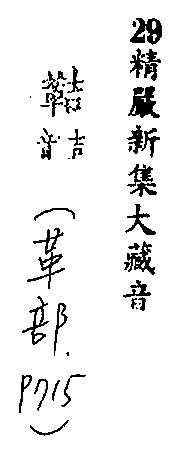 29精嚴新集大藏音
鞊
吉音
(革部.P715)